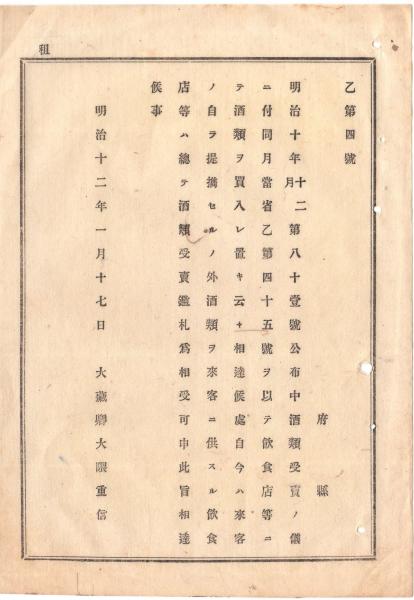 租
乙第四號
府縣
明治十年十二月第八十壹號公布中酒類受賣ノ儀
ニ付同月當省乙第四十五號ヲ以テ飮食店等ニ
テ酒類ヲ買入レ置キ云々相達候處自今ハ來客
ノ自ラ提携セルノ外酒類ヲ來客ニ供スル飮食
店等ハ總テ酒類受賣鑑札爲相受可申此旨相達
候事
明治十二年一月十七日 大藏卿大隈重信